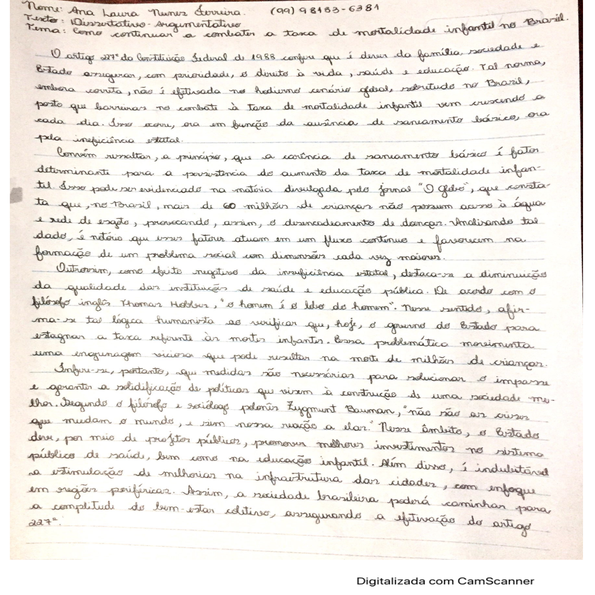 Nome: Ana Laura Nunes Ferreira. (99) 98153-6381
Texto: Dissertativo-argumentativo
Tema: Como continuar a combater a taxa de mortalidade infantil no Brasil.
O artigo 227º da Constituição Federal de 1988 confere que é dever da família, sociedade e
Estado assegurar, com prioridade, o direito à vida, saúde e educação. Tal norma,
embora correta, não é efetivada no hodierno cenário global, sobretudo no Brasil,
posto que barreiras no combate à taxa de mortalidade infantil vem crescendo a
cada dia. Isso ocorre, ora em função da ausência de saneamento básico, ora
pela ineficiência estatal.
Convém ressaltar, a princípio, que a carência de saneamento básico é fator
determinante para a persistência do aumento da taxa de mortalidade infan-
til. Isso pode ser evidenciado na matéria divulgada pelo jornal "O globo", que consta-
ta que, no Brasil, mais de 60 milhões de crianças não possuem acesso à água
e rede de esgoto, provocando, assim, o desencadeamento de doenças. Analisando tal
dado, é notório que esses fatores atuam em um fluxo contínuo e favorecem na
formação de um problema social com dimensões cada vez maiores.
Outrossim, como efeito negativo da insuficiência estatal, destaca-se a diminuição
da qualidade das instituições de saúde e educação pública. De acordo com o
filósofo inglês Thomas Hobbes, "o homem é o lobo do homem". Nesse sentido, afir-
ma-se tal lógica humanista ao verificar que, hoje, o governo do Estado para
estagnar a taxa referente às mortes infantis. Essa problemática movimenta
uma engrenagem viciosa que pode resultar na morte de milhões de crianças.
Infere-se, portanto, que medidas são necessárias para solucionar o impasse
e garantir a solidificação de políticas que visem à construção de uma sociedade me-
lhor. Segundo o filósofo e sociólogo polonês Zygmunt Bauman, "não são as crises
que mudam o mundo, e sim nossa reação a elas." Nesse âmbito, o Estado
deve, por meio de projetos públicos, promover melhores investimentos no sistema
público de saúde, bem como na educação infantil. Além disso, é indubitável
a estimulação de melhorias na infraestrutura das cidades, com enfoque
em regiões periféricas. Assim, a sociedade brasileira poderá caminhar para
a completude do bem-estar coletivo, assegurando a efetivação do artigo
227º.
Digitalizada com CamScanner